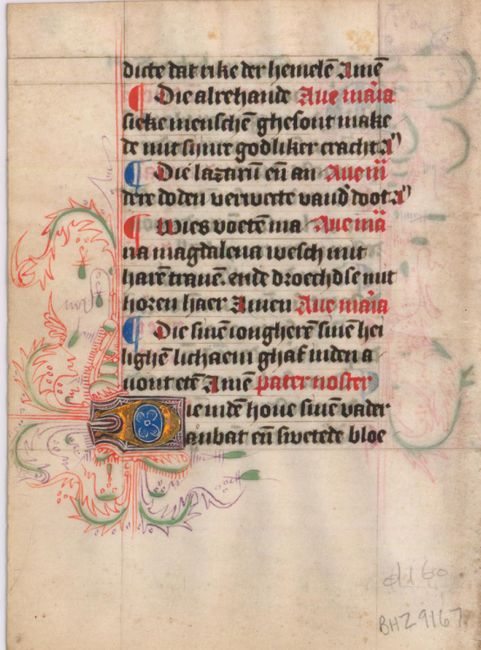 dicte dat rike der hemelē Amē
Die alrehande Aue maīa
sieke menschē ghesont make
de mit sijnre godliker cracht A͞
Die lazarū eñ an Aue m̄
dere doden verwecte vand̄ doot A͞
Wies voetē ma Aue mā
na magdalena wesch mit
harē tranē. ende droechdse mit
horen haer Amen Aue maīa
Die sinē iongherē sinē hei
lighē lichaem ghaf inden a
uont etē Amē pater noster
Die indē houe sinē vader
aenbat eñ swetede bloe
BHZ 9167